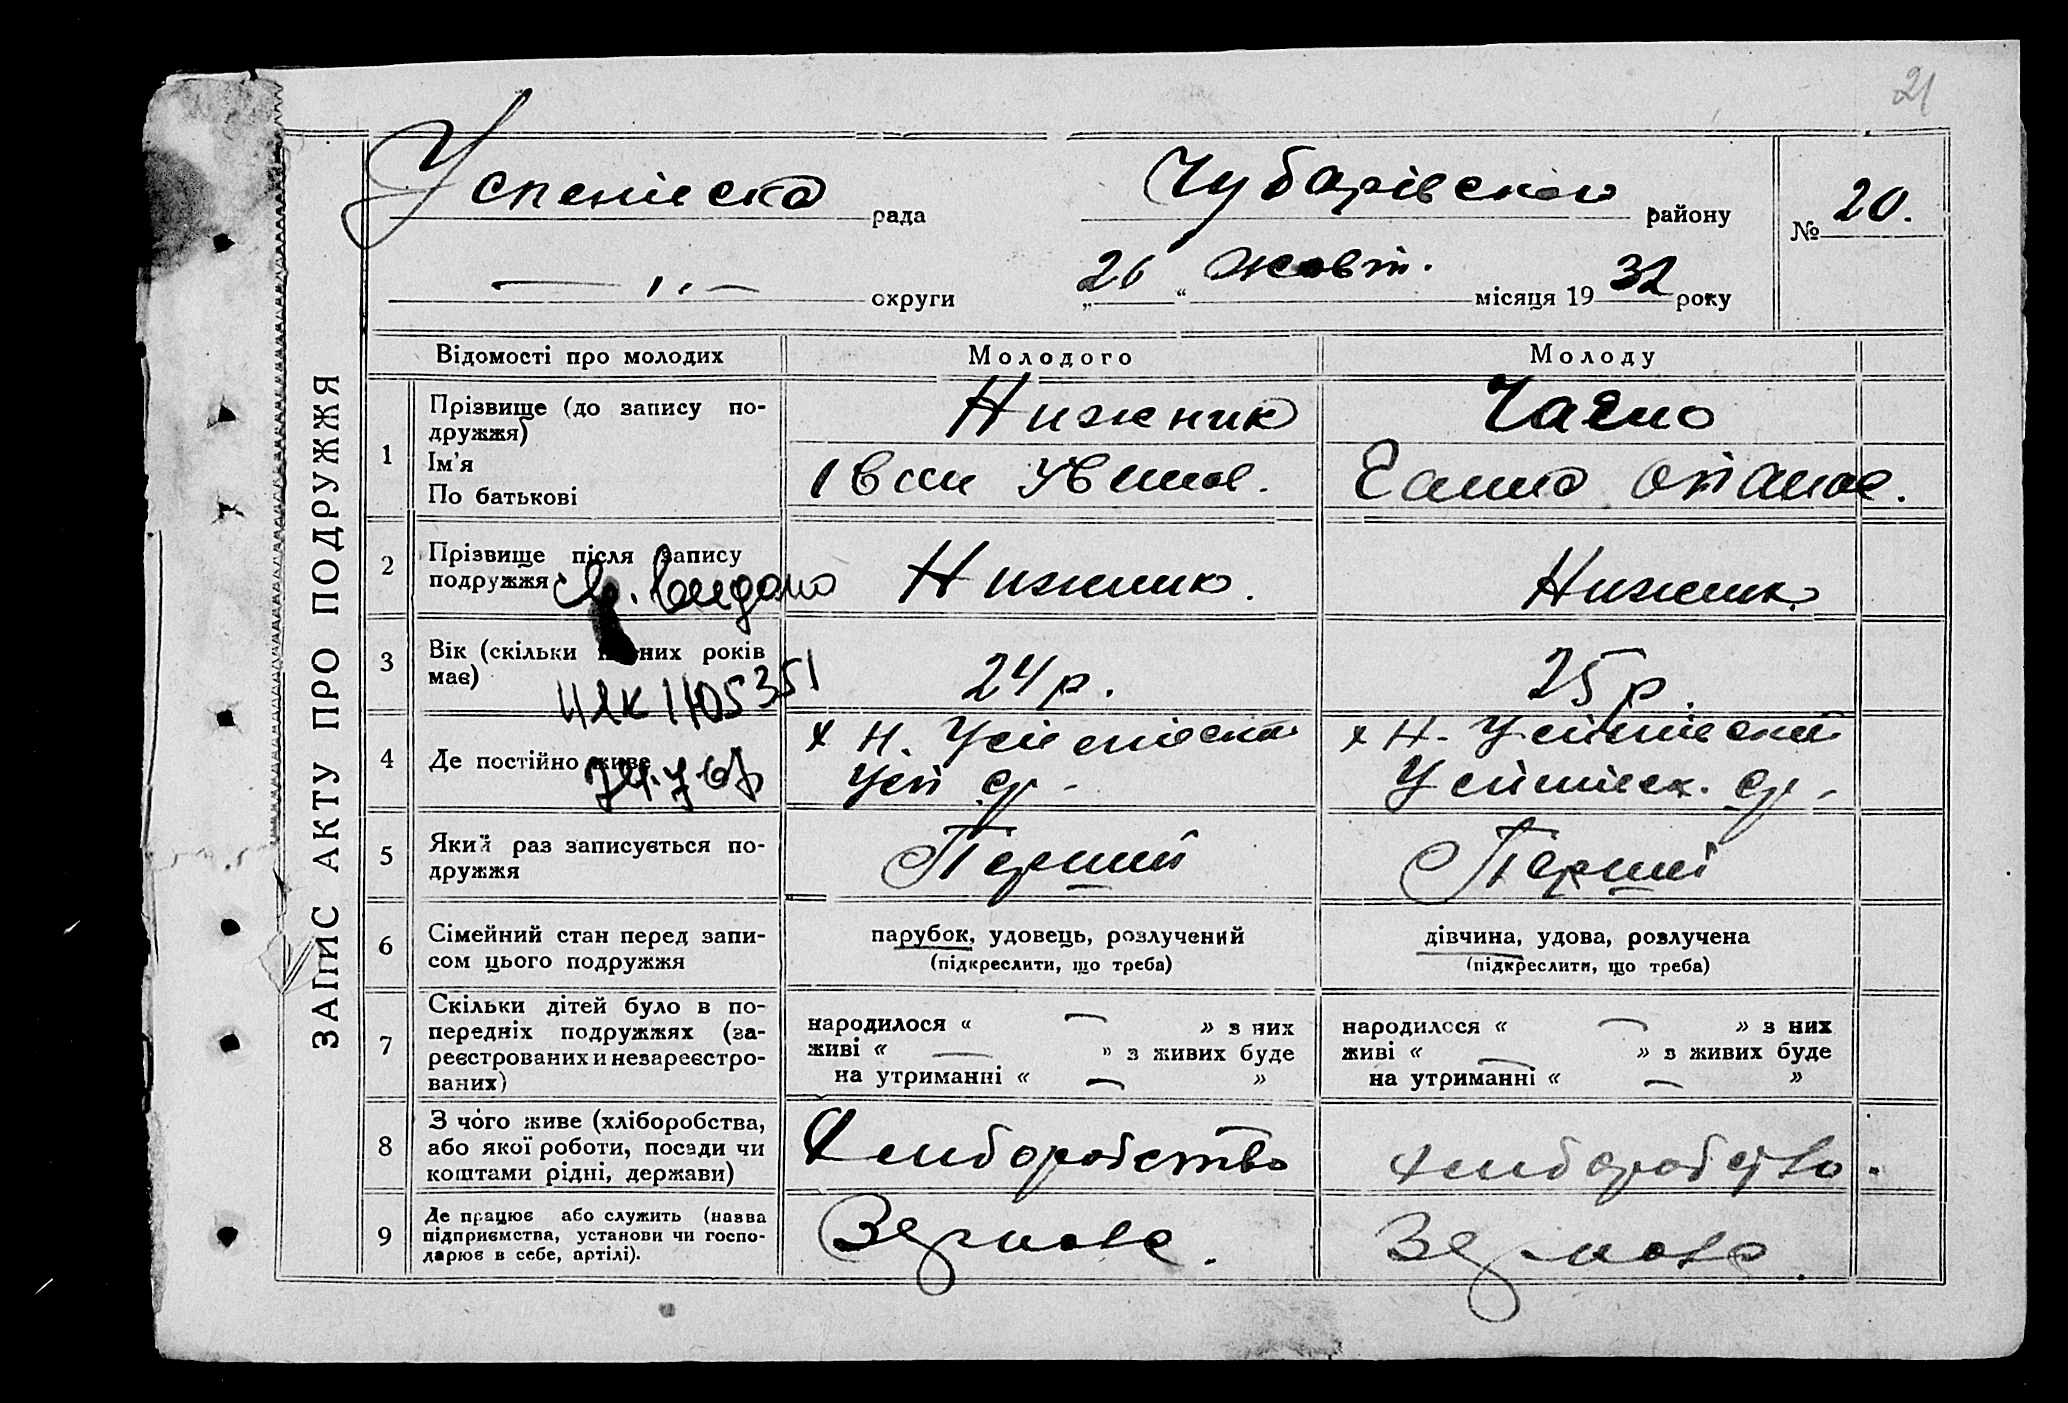 21
Успенівська рада
Чубарівського району
№ 20.
— „ — округи
„26“ жовт. місяця 1932 року
ЗАПИС АКТУ ПРО ПОДРУЖЖЯ
Відомості про молодих
Молодого
Молоду
1
Прізвище (до запису подружжя)
Ім'я
По батькові
Нижник
Іван Іванов.
Ганна Опанов.
2
Прізвище після запису подружжя
Нижник.
Нижник.
3
Вік (скільки повних років має)
24 р.
25 р.
4
Де постійно живе
х Н. Успенівка
Усп с/р -
х Н. Успенівка
Успенівськ. с/р -
5
Який раз записується подружжя
Перший
Перший
6
Сімейний стан перед записом цього подружжя
парубок, удовець, розлучений
(підкреслити, що треба)
дівчина, удова, розлучена
(підкреслити, що треба)
7
Скільки дітей було в попередніх подружжях (зареєстрованих и незареєстрованих)
народилося « — » з них
живі « — » з живих буде
на утриманні « — »
народилося « — » з них
живі « — » з живих буде
на утриманні « — »
8
З чого живе (хліборобства, або якої роботи, посади чи коштами рідні, держави)
Хліборобство
хліборобство.
9
Де працює або служить (назва підприємства, установи чи господарює в себе, артілі).